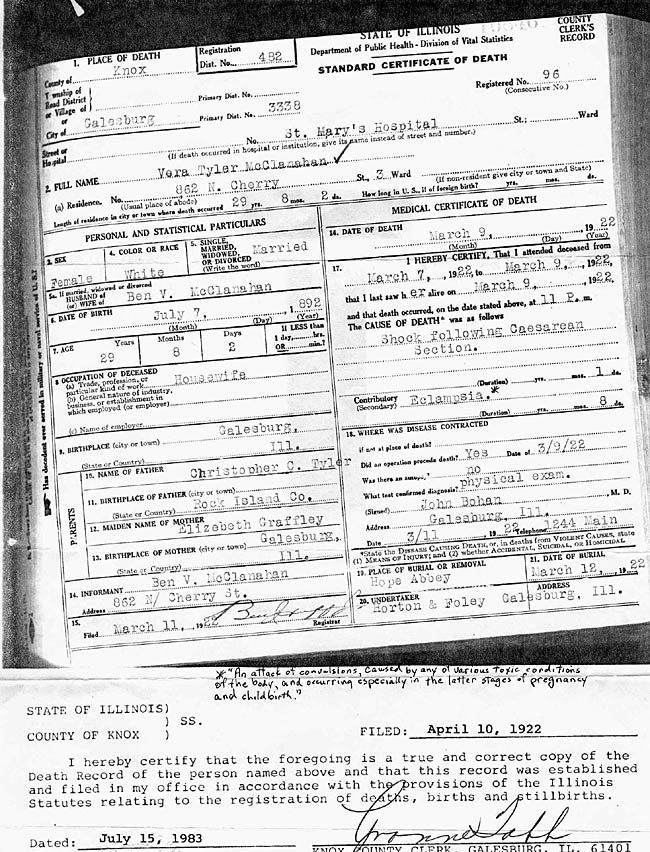 STATE OF ILLINOIS
Department of Public Health - Division of Vital Statistics
STANDARD CERTIFICATE OF DEATH
COUNTY CLERK'S RECORD
1. PLACE OF DEATH
County of Knox
Registration Dist. No. 482
Township of
Road District
or Village of
or
City of Galesburg
Primary Dist. No.
Primary Dist. No. 3338
Registered No. 96
(Consecutive No.)
Street or
Hospital No. St. Mary's Hospital St.; Ward
(If death occurred in hospital or institution, give its name instead of street and number.)
2. FULL NAME Vera Tyler McClanahan ✓
(a) Residence. No. 862 N. Cherry St., 3 Ward
(Usual place of abode) (If non-resident give city or town and State)
Length of residence in city or town where death occurred 29 yrs. 8 mos. 2 ds. How long in U. S., if of foreign birth? yrs. mos. ds.
PERSONAL AND STATISTICAL PARTICULARS
3. SEX
Female
4. COLOR OR RACE
White
5. SINGLE, MARRIED, WIDOWED, OR DIVORCED (Write the word)
Married
5a. If married, widowed or divorced
HUSBAND of
(or) WIFE of Ben V. McClanahan
6. DATE OF BIRTH July 7, 1892
(Month) (Day) (Year)
7. AGE Years Months Days If LESS than
29 8 2 1 day, hrs.
OR min.?
8 OCCUPATION OF DECEASED
(a) Trade, profession, or particular kind of work Housewife
(b) General nature of industry, business, or establishment in which employed (or employer)
(c) Name of employer
9. BIRTHPLACE (city or town) Galesburg,
(State or Country) Ill.
PARENTS
10. NAME OF FATHER Christopher C. Tyler
11. BIRTHPLACE OF FATHER (city or town)
(State or Country) Rock Island Co.
12. MAIDEN NAME OF MOTHER Elizebeth Graffley
13. BIRTHPLACE OF MOTHER (city or town) Galesburg,
(State or Country) Ill.
14. INFORMANT Ben V. McClanahan
Address 862 N/ Cherry St.
15.
Filed March 11, 192 Registrar
MEDICAL CERTIFICATE OF DEATH
16. DATE OF DEATH March 9, 1922
(Month) (Day) (Year)
17. I HEREBY CERTIFY, That I attended deceased from
March 7, 1922, to March 9, 1922,
that I last saw her alive on March 9, 1922,
and that death occurred, on the date stated above, at 11 P. m.
The CAUSE OF DEATH* was as follows
Shock following Caesarean
Section.
(Duration) yrs. mos. 1 ds.
Contributory Eclampsia.*
(Secondary)
(Duration) yrs. mos. 8 ds.
18. WHERE WAS DISEASE CONTRACTED
if not at place of death?
Did an operation precede death? Yes Date of 3/9/22
Was there an autopsy? no
What test confirmed diagnosis? physical exam.
(Signed) John Bohan, M. D.
Address Galesburg, Ill.
Date 3/11 1922 Telephone 1244 Main
*State the DISEASE CAUSING DEATH, or, in deaths from VIOLENT CAUSES, state
(1) MEANS OF INJURY; and (2) whether ACCIDENTAL, SUICIDAL, or HOMICIDAL
19. PLACE OF BURIAL OR REMOVAL
Hope Abbey
21. DATE OF BURIAL
March 12, 1922
20. UNDERTAKER ADDRESS
Horton & Foley Galesburg, Ill.
* "An attack of convulsions, caused by any of various toxic conditions
of the body, and occurring especially in the latter stages of pregnancy
and childbirth."
STATE OF ILLINOIS)
) SS.
COUNTY OF KNOX )
FILED: April 10, 1922
I hereby certify that the foregoing is a true and correct copy of the
Death Record of the person named above and that this record was established
and filed in my office in accordance with the provisions of the Illinois
Statutes relating to the registration of deaths, births and stillbirths.
Dated: July 15, 1983
KNOX COUNTY CLERK, GALESBURG, IL. 61401